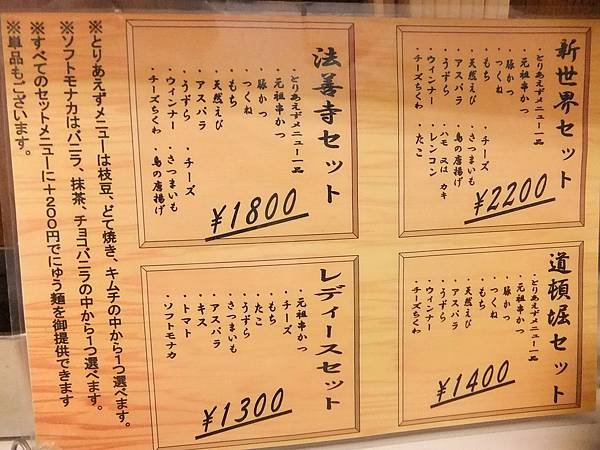 新世界セット
・とりあえずメニュー一品
・元祖串かつ
・豚かつ
・つくね
・もち
・天然えび
・アスパラ
・うずら
・ウィンナー
・チーズちくわ
・チーズ
・さつまいも
・鳥の唐揚げ
・ハモ 又は カキ
・レンコン
・たこ
¥2200
法善寺セット
・とりあえずメニュー一品
・元祖串かつ
・豚かつ
・つくね
・もち
・天然えび
・アスパラ
・うずら
・ウィンナー
・チーズちくわ
・チーズ
・さつまいも
・鳥の唐揚げ
¥1800
道頓堀セット
・とりあえずメニュー一品
・元祖串かつ
・豚かつ
・つくね
・もち
・天然えび
・アスパラ
・うずら
・ウィンナー
・チーズちくわ
¥1400
レディースセット
・元祖串かつ
・チーズ
・もち
・たこ
・うずら
・さつまいも
・アスパラ
・キス
・トマト
・ソフトモナカ
¥1300
※とりあえずメニューは枝豆、どて焼き、キムチの中から1つ選べます。
※ソフトモナカはバニラ、抹茶、チョコバニラの中から1つ選べます。
※すべてのセットメニューに+200円でにゅう麺を御提供できます
※単品もございます。